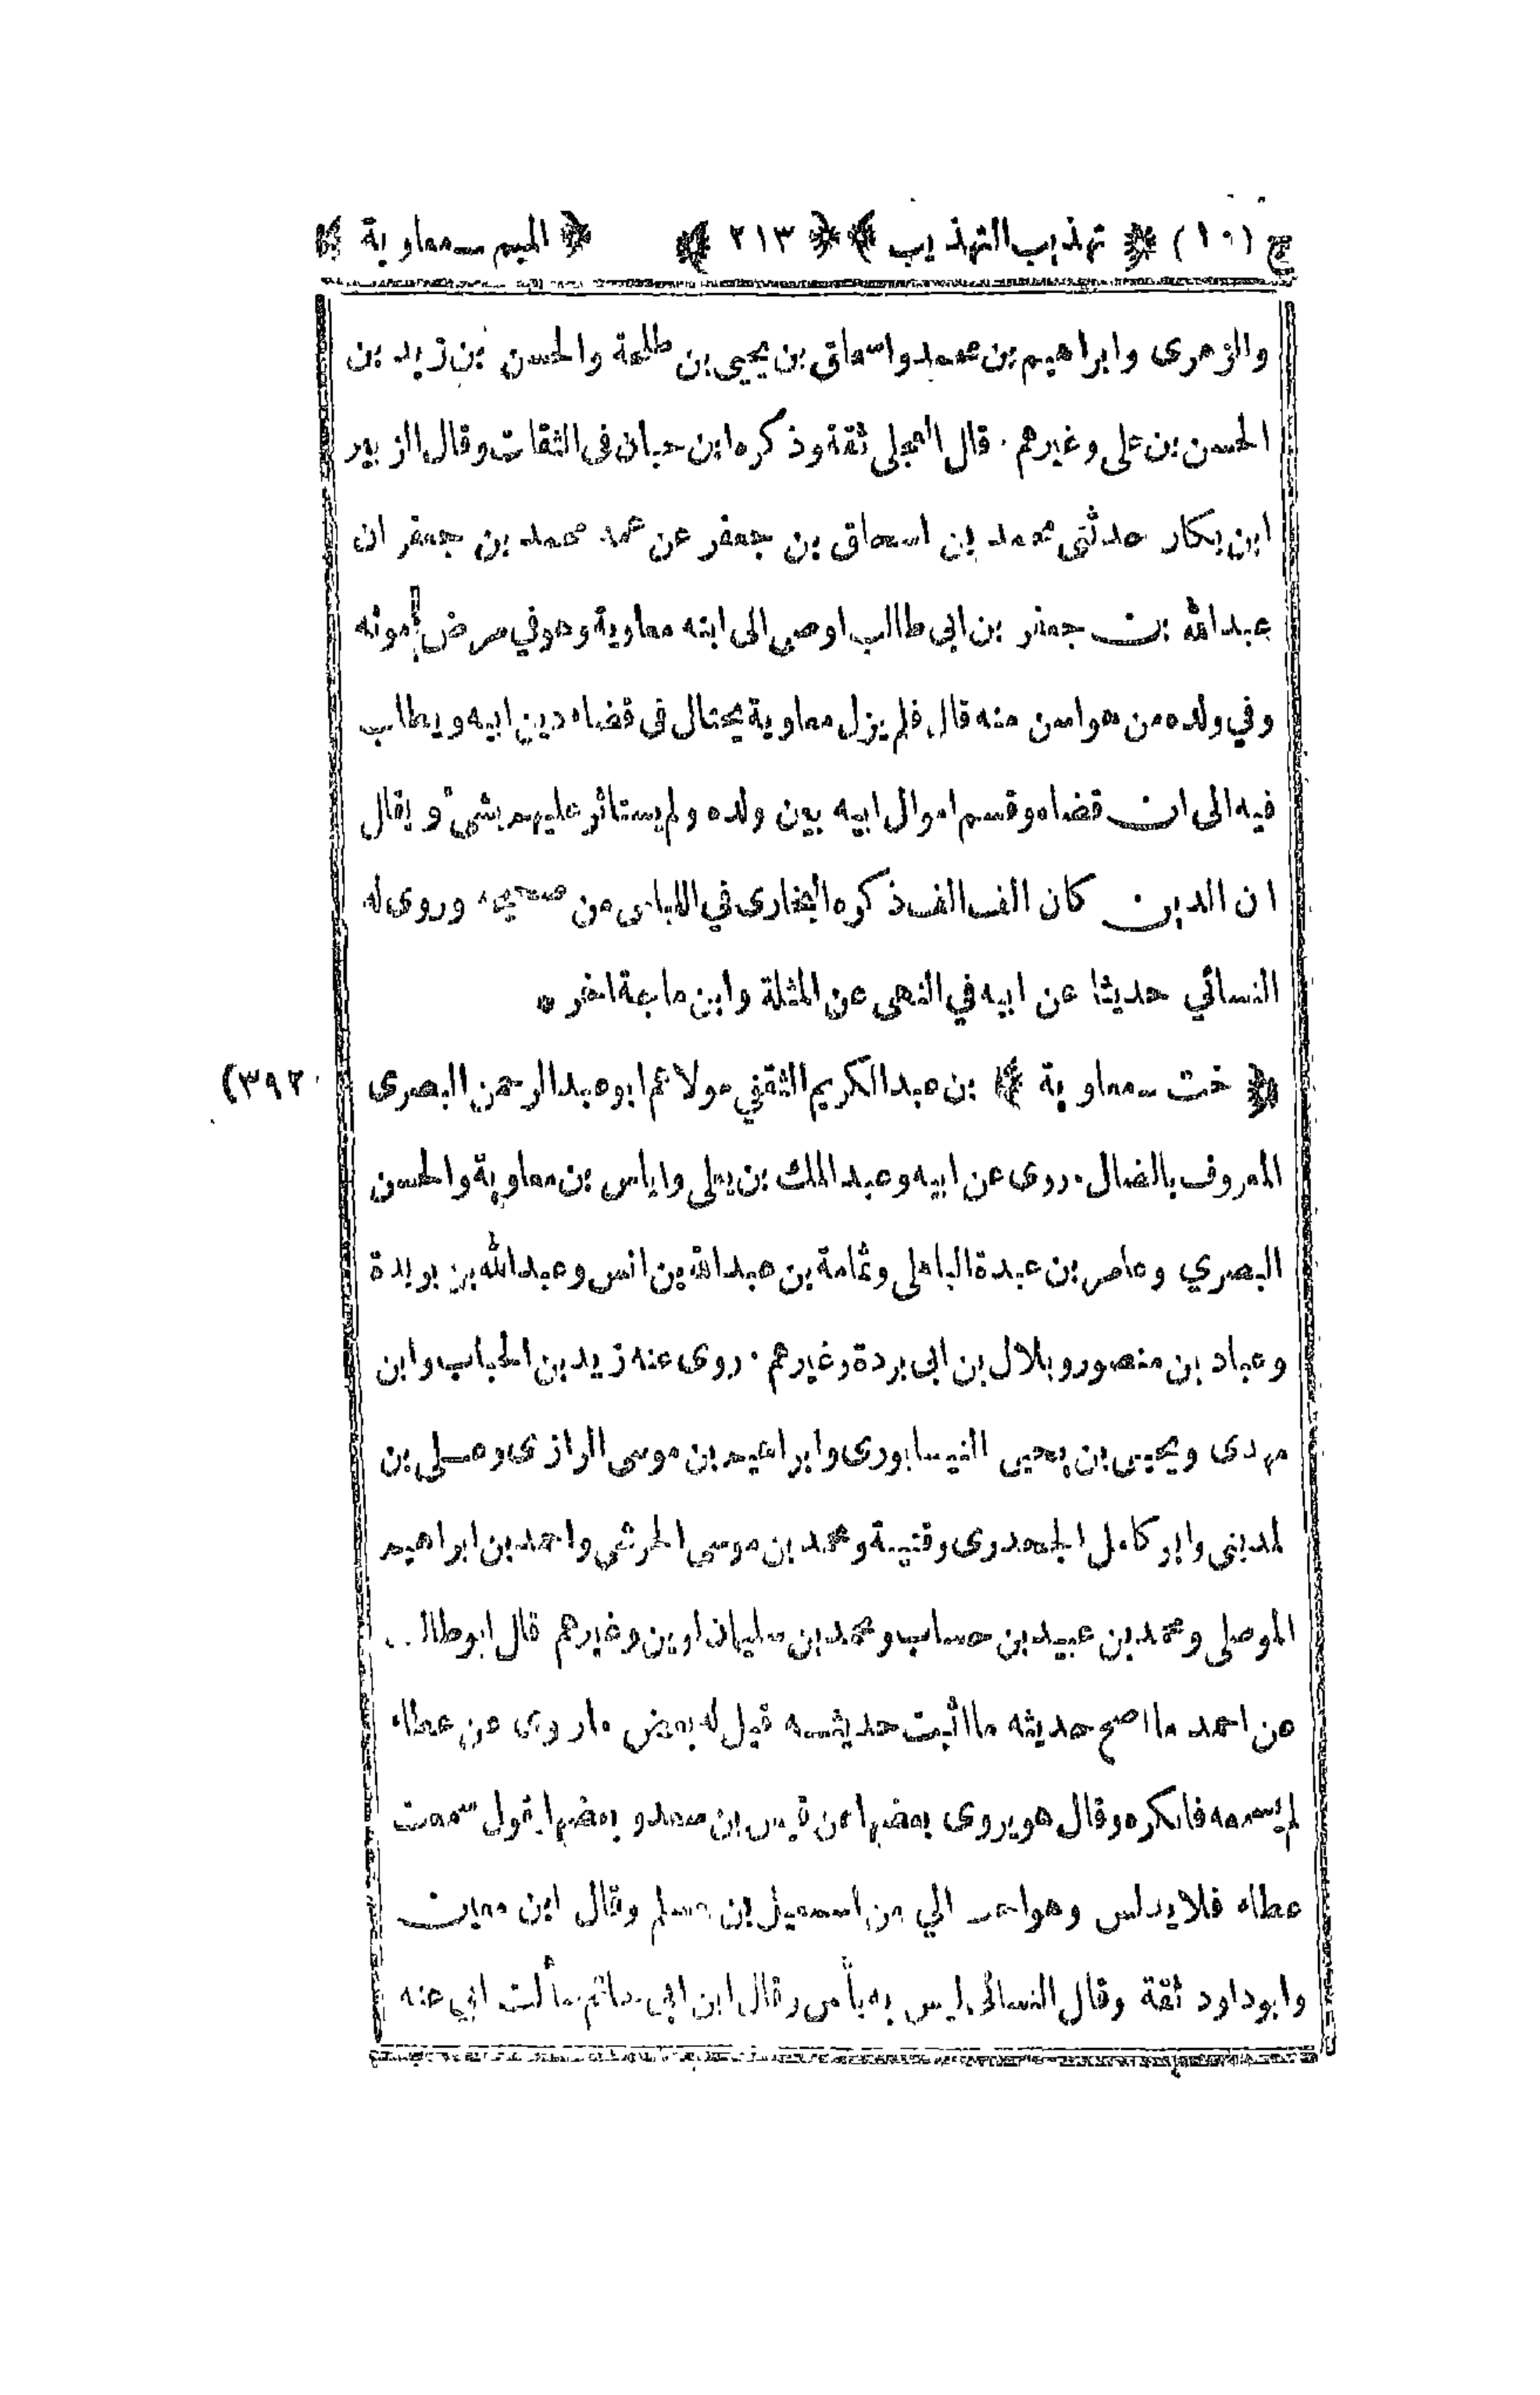 ج (١٠) ﴿ تهذيب التهذيب ﴾ ﴿ ٢١٣ ﴾ ﴿ الميم ـ معاوية ﴾
والزهرى وابراهيم بن محمد واسحاق بن يحيى بن طلحة والحسن بن زيد بن
الحسن بن على وغيرهم · قال العجلى ثقة وذكره ابن حبان فى الثقات وقال الزبير
ابن بكار حدثنى محمد بن اسحاق بن جعفر عن عمه محمد بن جعفر ان
عبدالله بن جعفر بن ابى طالب اوصى الى ابنه معاوية وهو في مرض موته
وفي ولده من هو اسن منه قال فلم يزل معاوية يحتال فى قضاء دين ابيه ويطلب
فيه الى ان قضاه وقسم اموال ابيه بين ولده ولم يستاثر عليهم بشئ ويقال
ان الدين كان الف الف ذكره البخارى في اللباس من صحيحه وروى له
النسائي حديثا عن ابيه في النهى عن المثلة وابن ماجة اخر ٭
﴿ خت ـ معاوية ﴾ بن عبدالكريم الثقفي مولاهم ابو عبدالرحمن البصرى
(٣٩٢
المعروف بالضال · روى عن ابيه وعبد الملك بن يعلى واياس بن معاوية والحسن
البصري وعامر بن عبدة الباهلى وثمامة بن عبدالله بن انس وعبدالله بن بريدة
وعباد بن منصور وبلال بن ابى بردة وغيرهم · روى عنه زيد بن الحباب وابن
مهدى ويحيى بن يحيى النيسابورى وابراهيم بن موسى الرازى وعلى بن
لمدينى وابو كامل الجحدرى وقتيبة ومحمد بن موسى الحرشى واحمد بن ابراهيم
الموصلى ومحمد بن عبيد بن حساب ومحمد بن سليمان لوين وغيرهم قال ابوطالب
عن احمد ما اصح حديثه ما اثبت حديثه قيل له بعض ما روى عن عطاء
لم يسمعه فانكره وقال هو يروى بعضها عن قيس بن سعد و بعضها يقول سمعت
عطاء فلا يدلس وهو احب الي من اسمعيل بن مسلم وقال ابن معين
وابوداود ثقة وقال النسائى ليس به بأس وقال ابن ابى حاتم سألت ابي عنه